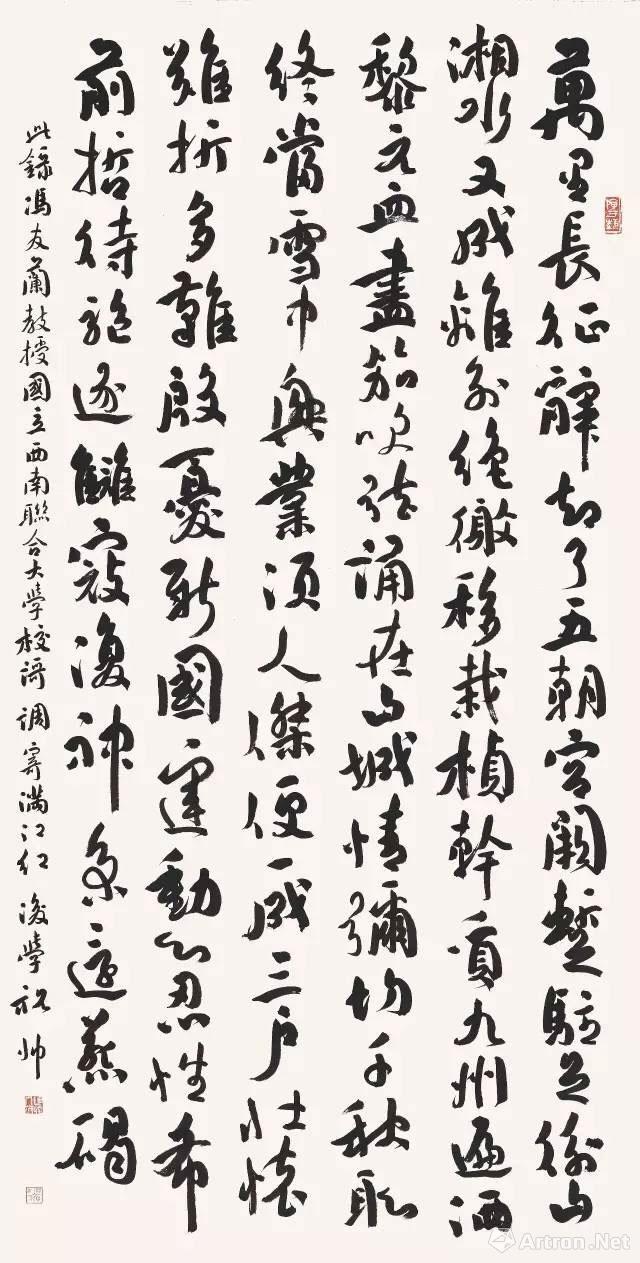 萬里長征辭却了五朝宮闕暫駐足衡山
湘水又成離別絶徼移栽楨幹質九州遍洒
黎元血盡笳吹弦誦在山城情彌切千秋恥
終當雪中興業須人傑便一成三户壯懷
難折多難殷憂新國運動心忍性希
前哲待驅逐讎寇復神京還燕碣
此錄馮友蘭教授國立西南聯合大學校歌調寄滿江紅 後學祝帥
Artron.Net